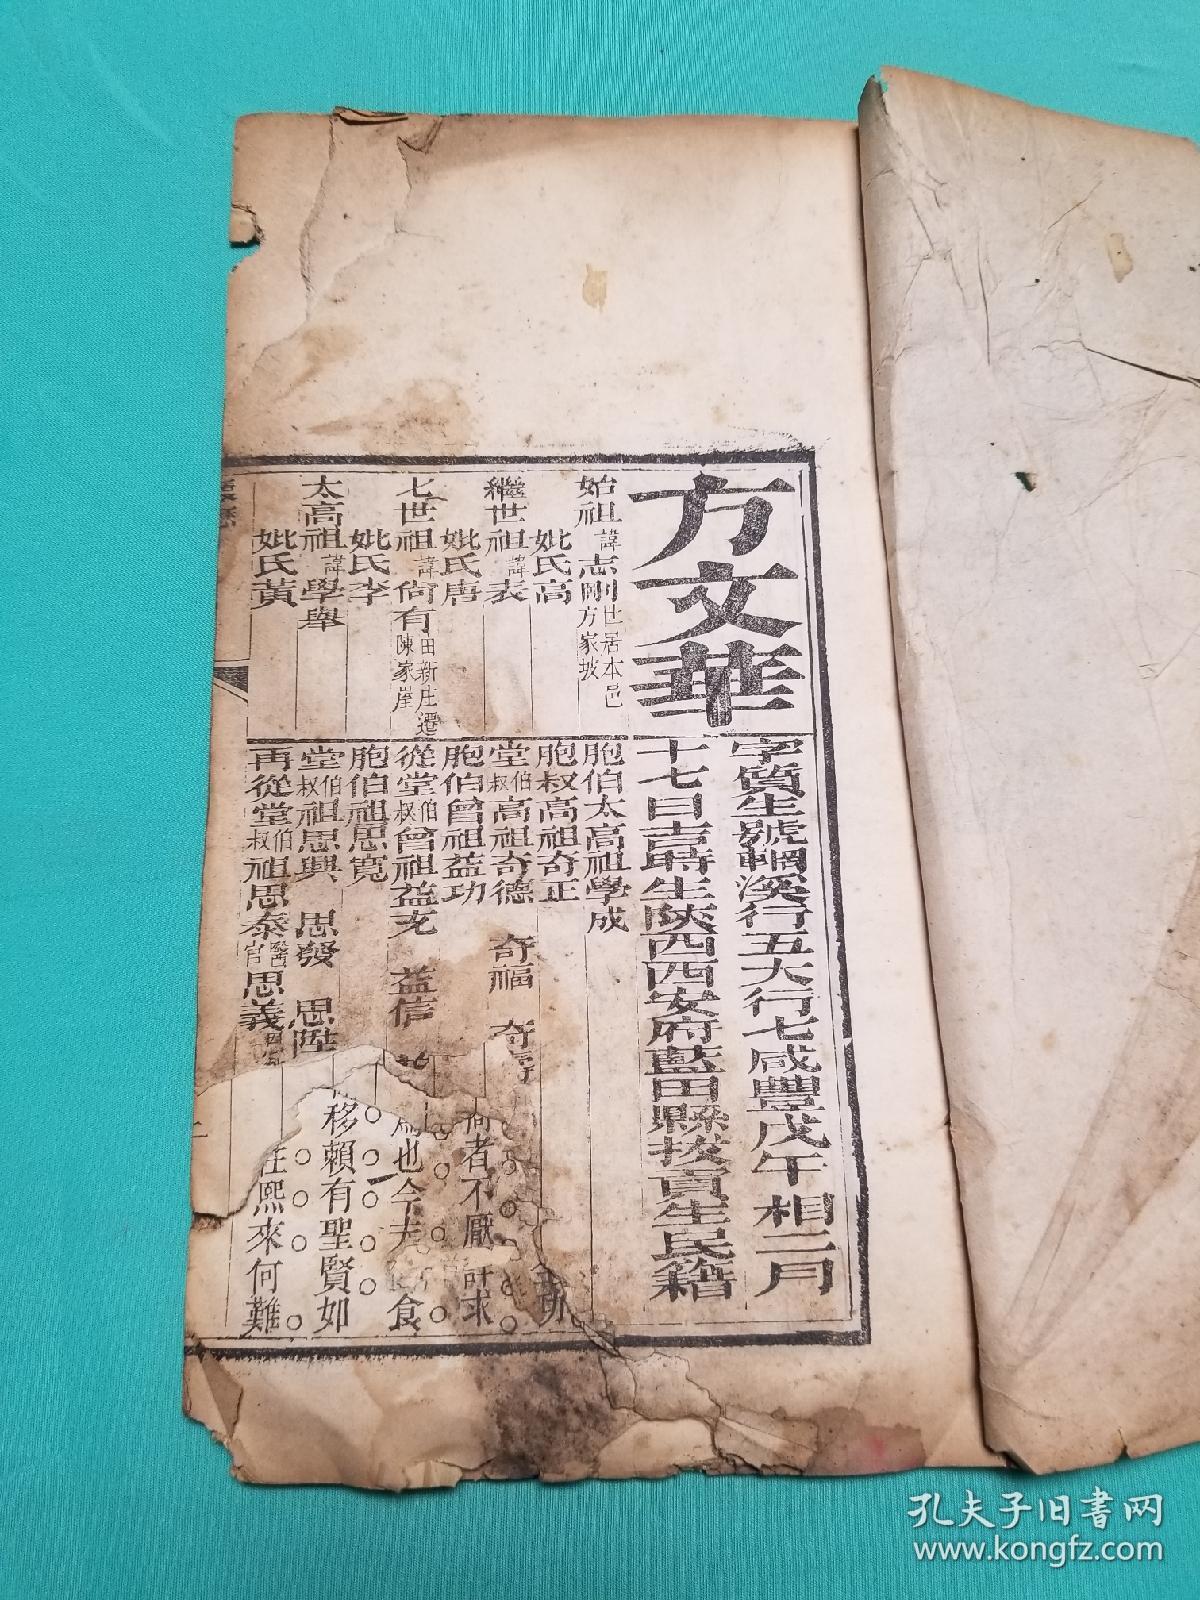 方文華
字質生號輞溪行五大行七咸豐戊午相二月
十七日吉時生陝西西安府藍田縣拔貢生民籍
始祖諱志剛世居本邑方家坡
妣氏高
繼世祖諱表
妣氏唐
七世祖諱尙有田新庄遷陳家崖
妣氏李
太高祖諱學舉
妣氏黃
胞伯太高祖學成
胞叔高祖奇正
堂伯叔高祖奇德 奇福 奇壽
胞伯曾祖益功
從堂伯叔曾祖益充 益信
胞伯祖思寬
堂伯叔祖思興 思發 思陞
再從堂伯叔祖思泰醫官思義
者不厭 求
也今夫 食
移賴有聖賢如
熙來何難
孔夫子旧書网
www.kongfz.com